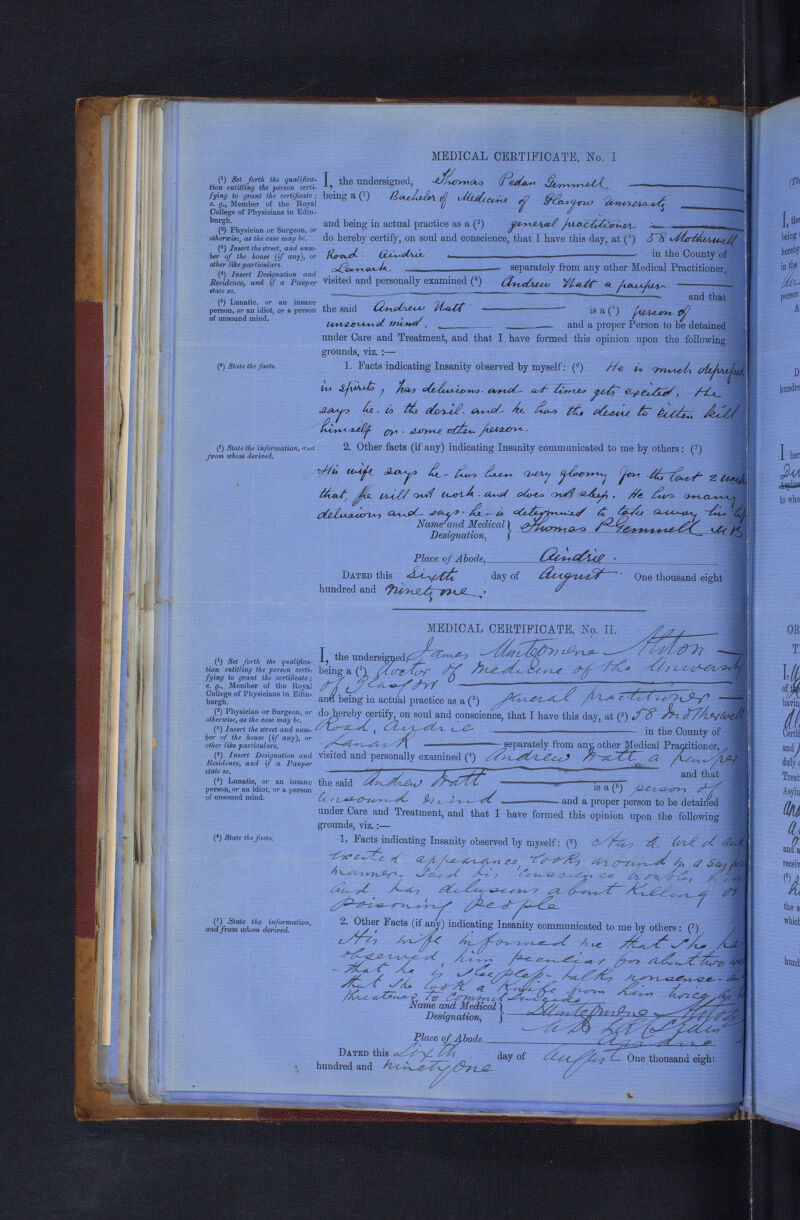 MEDICAL CERTIFICATE, No. I
(1) Set forth the qualifica-
tion entitling the person certi-
fying to grant the certificate;
e. g., Member of the Royal
College of Physicians in Edin-
burgh.
(2) Physician or Surgeon, or
otherwise, as the case may be.
(3) Insert the street, and num-
ber of the house (if any), or
other like particulars.
(4) Insert Designation and
Residence, and if a Pauper
state so.
(5) Lunatic, or an insane
person, or an idiot, or a person
of unsound mind.
(6) State the facts.
(7) State the information, and
from whom derived.
I, the undersigned, Thomas Pedan Gemmell
being a (1) Bachelor of Medicine of Glasgow University
and being in actual practice as a (2) general practitioner
do hereby certify, on soul and conscience, that I have this day, at (3) 58 Motherwell
Road Airdrie in the County of
Lanark. separately from any other Medical Practitioner,
visited and personally examined (4) Andrew Watt a pauper
and that
the said Andrew Watt is a (5) person of
unsound mind. and a proper Person to be detained
under Care and Treatment, and that I have formed this opinion upon the following
grounds, viz. :—
1. Facts indicating Insanity observed by myself: (6) He is much depressed
in spirits, has delusions and at times gets excited. He
says he is the devil and he has the desire to either kill
himself or some other person.
2. Other facts (if any) indicating Insanity communicated to me by others: (7)
His wife says he has been very gloomy for the last 2 weeks
that, he will not work and does not sleep. He has many
delusions and says he is determined to take away his life
Name and Medical Designation, Thomas P Gemmell M B
Place of Abode, Airdrie.
DATED this Sixth day of August One thousand eight
hundred and ninety one.
MEDICAL CERTIFICATE, No. II.
(1) Set forth the qualifica-
tion entitling the person certi-
fying to grant the certificate;
e. g., Member of the Royal
College of Physicians in Edin-
burgh.
(2) Physician or Surgeon, or
otherwise, as the case may be.
(3) Insert the street and num-
ber of the house (if any), or
other like particulars.
(4) Insert Designation and
Residence, and if a Pauper
state so.
(5) Lunatic, or an insane
person, or an idiot, or a person
of unsound mind.
(6) State the facts.
(7) State the information,
and from whom derived.
I, the undersigned, James Montgomerie Alston
being a (1) Doctor of Medicine of the University
of Glasgow
and being in actual practice as a (2) general practitioner
do hereby certify, on soul and conscience, that I have this day, at (3) 58 Motherwell
Road, Airdrie in the County of
Lanark separately from any other Medical Practitioner,
visited and personally examined (4) Andrew Watt a pauper
and that
the said Andrew Watt is a (5) person of
unsound mind and a proper person to be detained
under Care and Treatment, and that I have formed this opinion upon the following
grounds, viz. :—
1. Facts indicating Insanity observed by myself: (6) Has a wild and
excited appearance, looks around in a
manner. Said his conscience troubles him
and has delusions about killing or
poisoning people
2. Other Facts (if any) indicating Insanity communicated to me by others: (7)
His wife informed me that she has
observed him peculiar for about two
- that he is sleepless - talks nonsense - and
that she took a knife from him twice
threatened to commit suicide
Name and Medical Designation, J Montgomerie Alston
Place of Abode Airdrie
DATED this Sixth day of August One thousand eight
hundred and ninety One